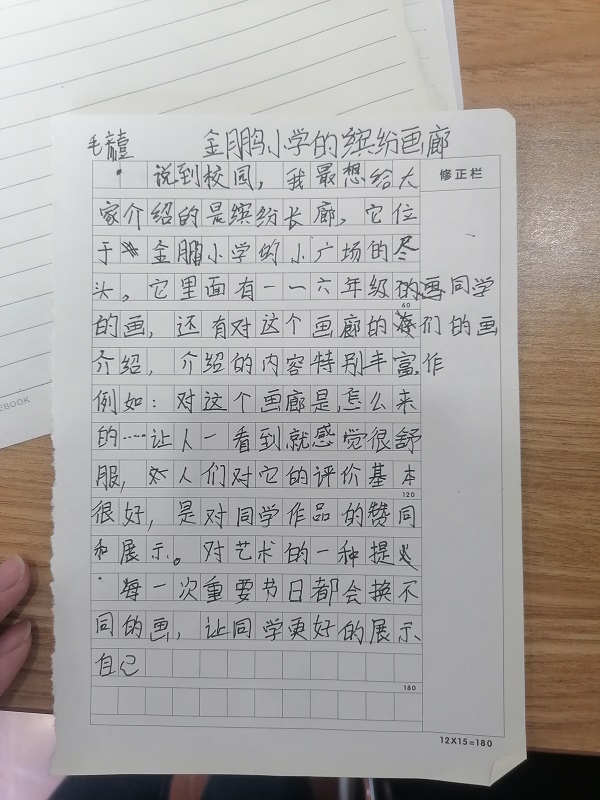 毛熹 金鹏小学的缤纷画廊
说到校园，我最想给大
修正栏
家介绍的是缤纷长廊，它位
于金鹏小学的小广场的尽
头。它里面有一一六年级的画同学
60
的画，还有对这个画廊的们的画
介绍，介绍的内容特别丰富，作
例如：对这个画廊是怎么来
的……让人一看到就感觉很舒
服，人们对它的评价基本
120
很好，是对同学作品的赞同
和展示。对艺术的一种提
每一次重要节日都会换不
同的画，让同学更好的展示
自己
180
12X15=180
EBOOK